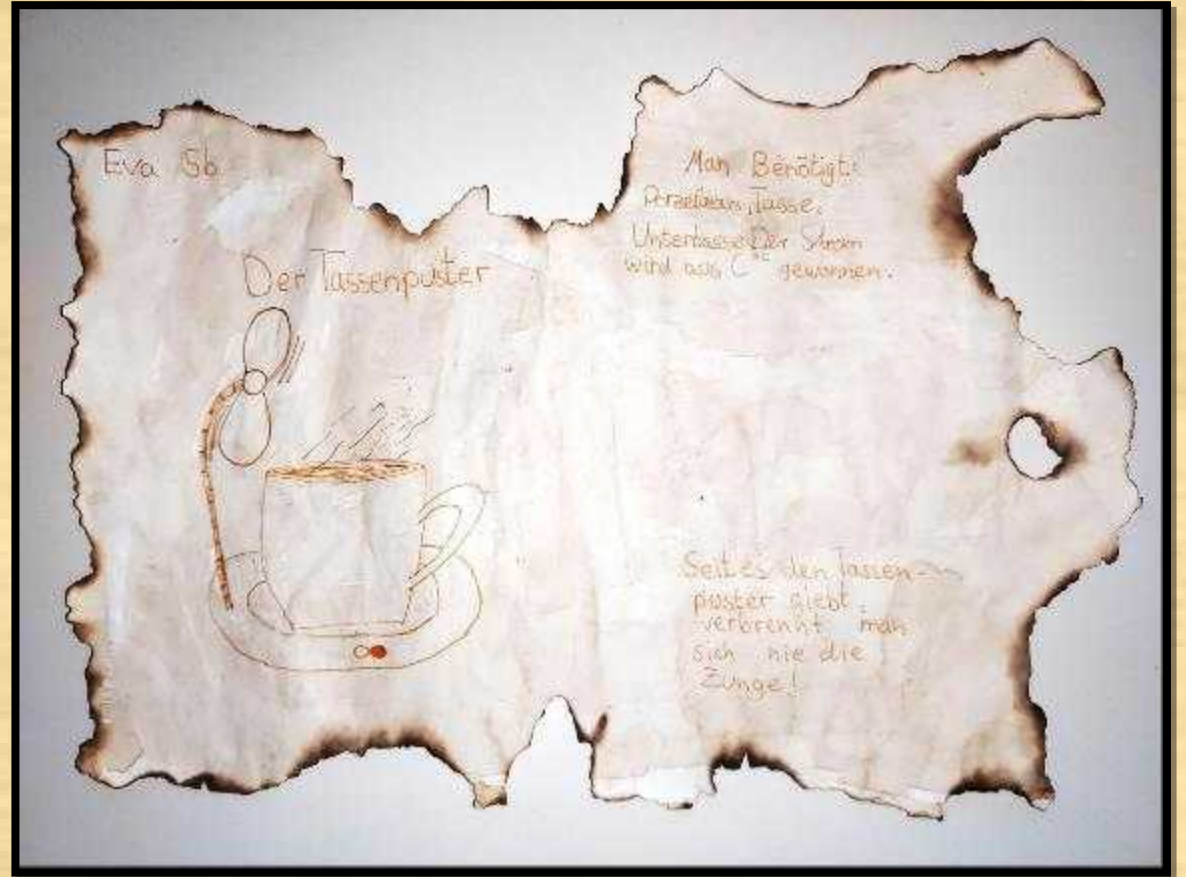 Eva 5b
Der Tassenpuster
Man Benötigt:
Porzellan, Tasse,
Untertasse Der Strom
wird aus C°C gewonnen.
Seit es den Tassen-
puster giebt,
verbrennt man
sich nie die
Zunge!